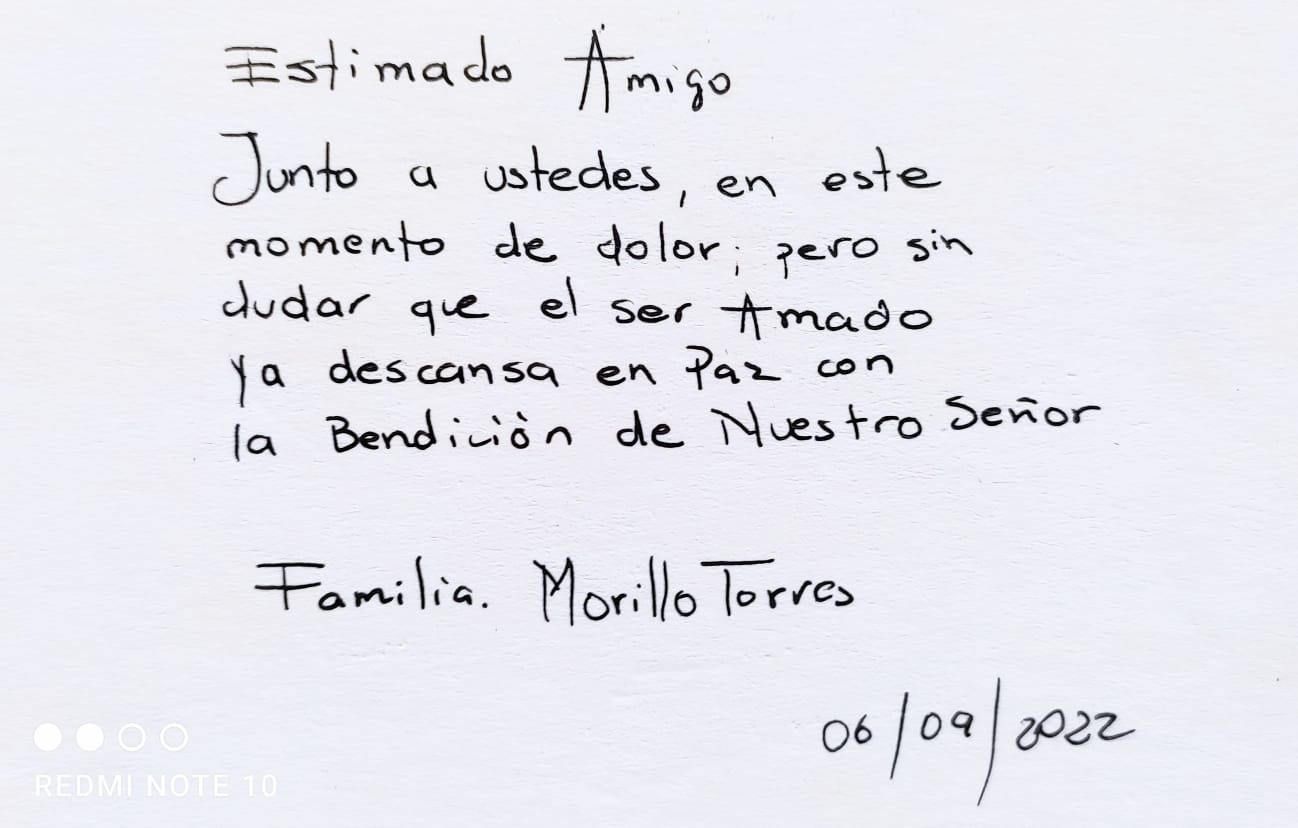 Estimado Amigo
Junto a ustedes, en este
momento de dolor; pero sin
dudar que el ser Amado
Ya descansa en Paz con
la Bendición de Nuestro Señor
Familia. Morillo Torres
06/09/2022
REDMI NOTE 10